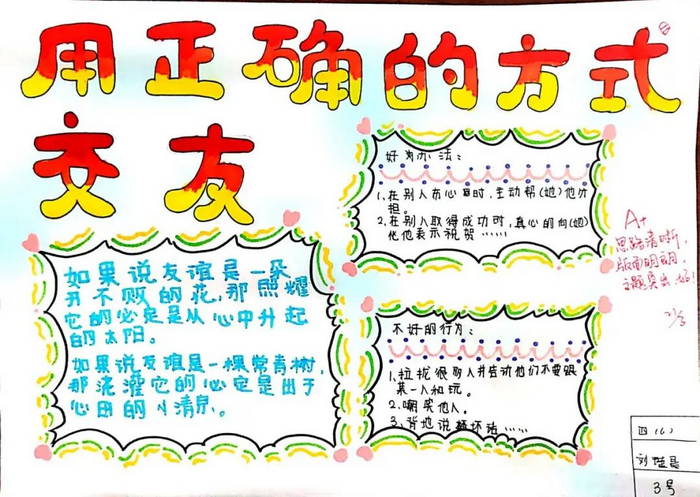 用正确的方式
交友
如果说友谊是一朵
开不败的花,那照耀
它的必定是从心中升起
的太阳。
如果说友谊是一棵常青树,
那浇灌它的必定是出于
心田的小清泉。
好的办法:
1、在别人有心事时,主动帮(她)他分
担。
2、在别人取得成功时,真心的向(她)
他表示祝贺……
不好的行为:
1、拉拢很多人并劝他们不要跟
某一人和玩。
2、嘲笑他人。
3、背地说坏话……
A+
思路清晰,
版面明朗,
主题突出,好!
四(6)
3号